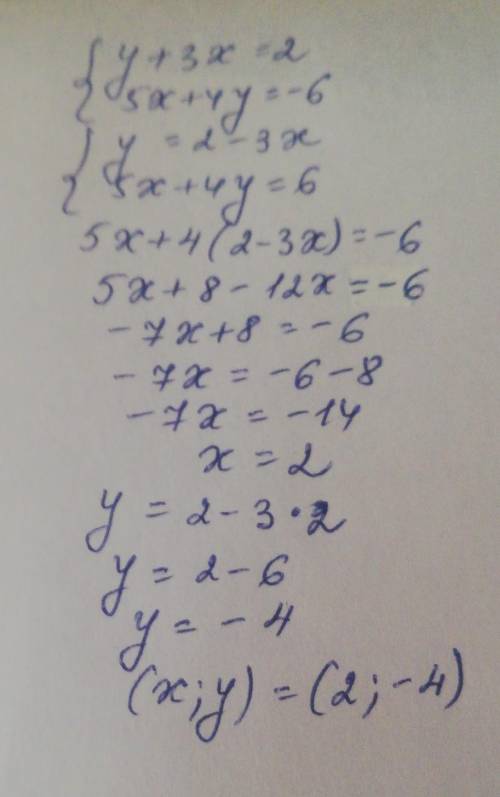 { y + 3x = 2
5x + 4y = -6
{ y = 2 - 3x
5x + 4y = 6
5x + 4(2 - 3x) = -6
5x + 8 - 12x = -6
-7x + 8 = -6
-7x = -6 - 8
-7x = -14
x = 2
y = 2 - 3 · 2
y = 2 - 6
y = -4
(x; y) = (2; -4)